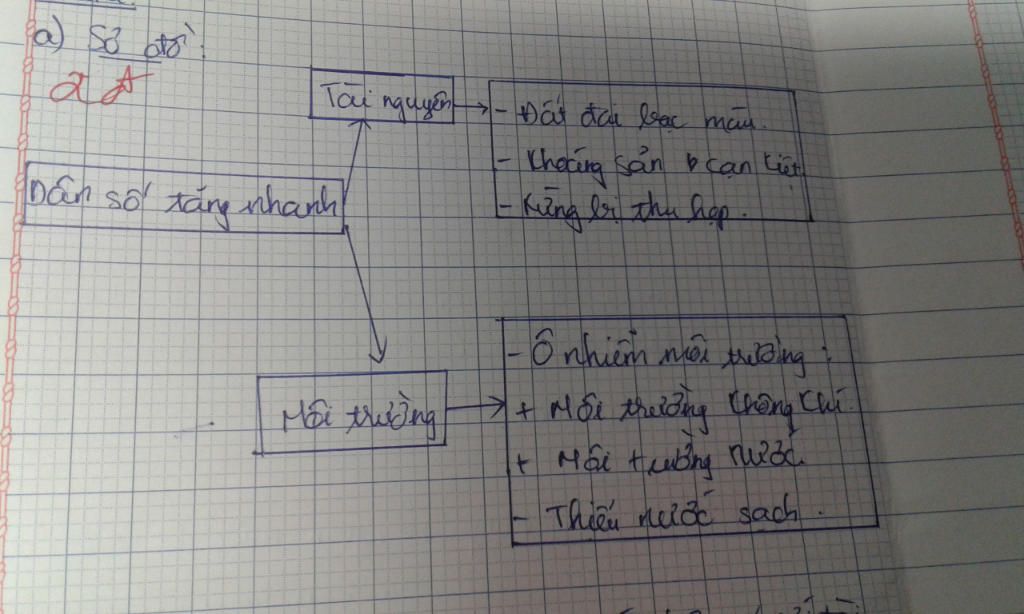 a) Sơ đồ:
2 đ
Tài nguyên
- Đất đai bạc màu.
- Khoáng sản cạn kiệt
- Rừng bị thu hẹp.
Dân số tăng nhanh
- Ô nhiễm môi trường:
Môi trường
+ Môi trường không khí.
+ Môi trường nước.
- Thiếu nước sạch.